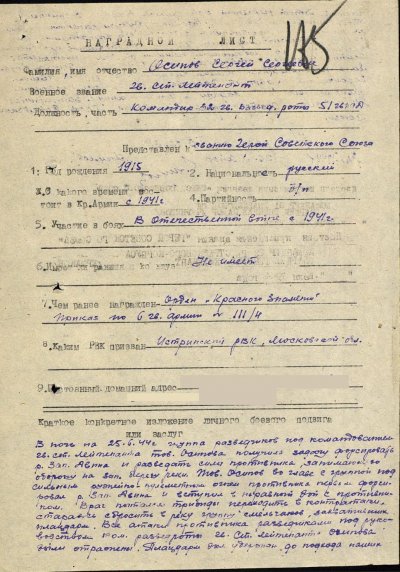 НАГРАДНОЙ ЛИСТ
115
Фамилия, имя отчество Осипов Сергей Сергеевич
Военное звание гв. ст. лейтенант
Должность, часть Командир развед. роты
Представлен к званию Героя Советского Союза
1. Год рождения 1915
2. Национальность русский
3. С какого времени состоит в Кр. Армии с 1941г
4. Партийность б/п
5. Участие в боях В Отечественной войне с 1941г.
6. Имеет ли ранения Не имеет
7. Чем ранее награжден Орден "Красного Знамени"
приказ по 6 гв. армии № 111/н
8. Каким РВК призван Истринский РВК, Московской обл.
9. Постоянный домашний адрес
Краткое конкретное изложение личного боевого подвига
или заслуг
В ночь на 25.6.44г группа разведчиков под командованием
гв. ст. лейтенанта тов. Осипова получила задачу форсировать
р. Зап. Двина и разведать силы противника, занимающего
оборону на зап. берегу реки. Тов. Осипов во главе с группой под
сильным пулеметным огнем противника первым форси-
ровал р. Зап. Двина и вступил в неравный бой с противни-
ком. Враг пытался трижды переходить в контратаки,
стараясь сбросить в реку группу смельчаков, захвативших
плацдарм. Все атаки противника разведчиками под руко-
водством ком. разведроты гв. ст. лейтенанта Осипова
были отражены. Плацдарм был удержан, до подхода наших